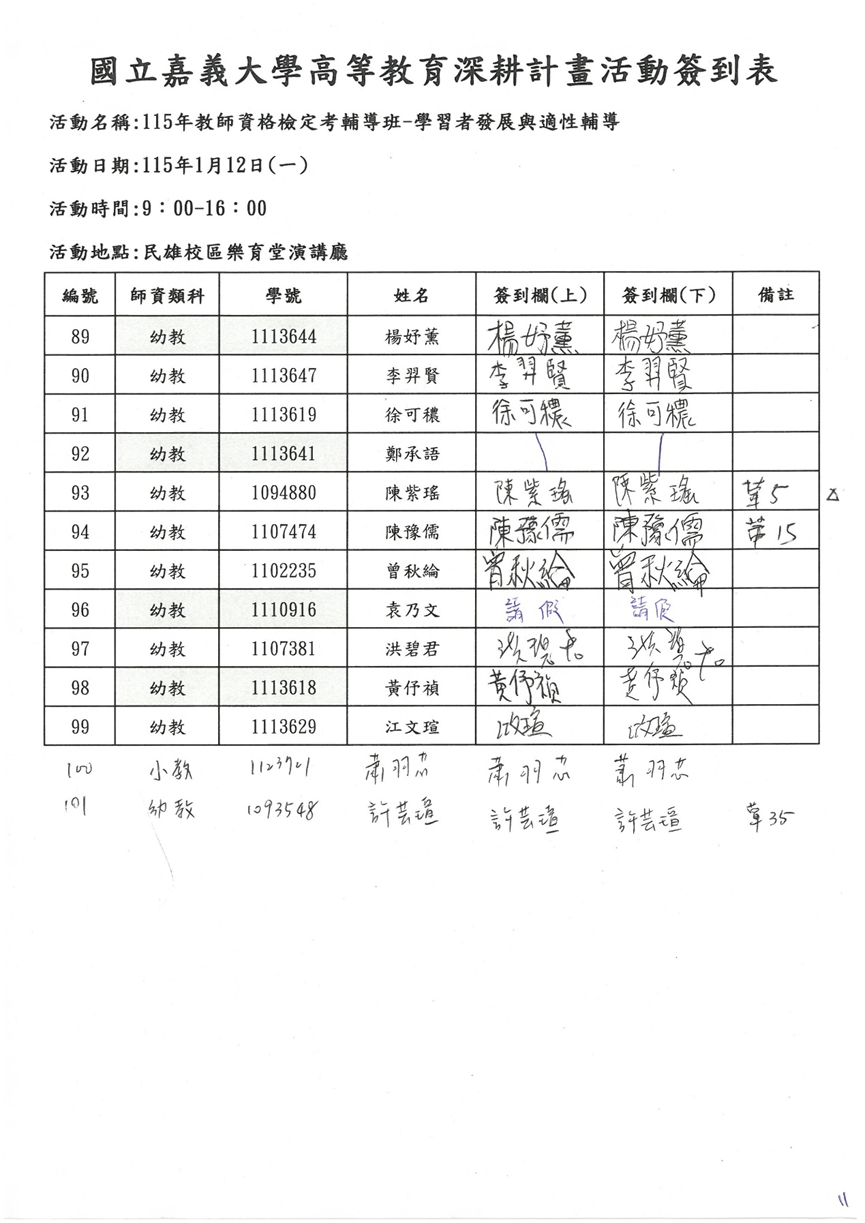 國立嘉義大學高等教育深耕計畫活動簽到表
活動名稱:115年教師資格檢定考輔導班-學習者發展與適性輔導
活動日期:115年1月12日(一)
活動時間:9:00-16:00
活動地點:民雄校區樂育堂演講廳
編號 師資類科 學號 姓名 簽到欄(上) 簽到欄(下) 備註
89 幼教 1113644 楊妤薰 楊妤薰 楊妤薰
90 幼教 1113647 李羿賢 李羿賢 李羿賢
91 幼教 1113619 徐可穠 徐可穠 徐可穠
92 幼教 1113641 鄭承語
93 幼教 1094880 陳紫瑤 陳紫瑤 陳紫瑤 葷5
94 幼教 1107474 陳豫儒 陳豫儒 陳豫儒 葷15
95 幼教 1102235 曾秋綸 曾秋綸 曾秋綸
96 幼教 1110916 袁乃文 請假 請假
97 幼教 1107381 洪碧君 洪碧君 洪碧君
98 幼教 1113618 黃伃禎 黃伃禎 黃伃禎
99 幼教 1113629 江文瑄 江文瑄 江文瑄
100 小教 1123721 蕭羽芯 蕭羽芯 蕭羽芯
101 幼教 1093548 許芸瑄 許芸瑄 許芸瑄 葷35
11